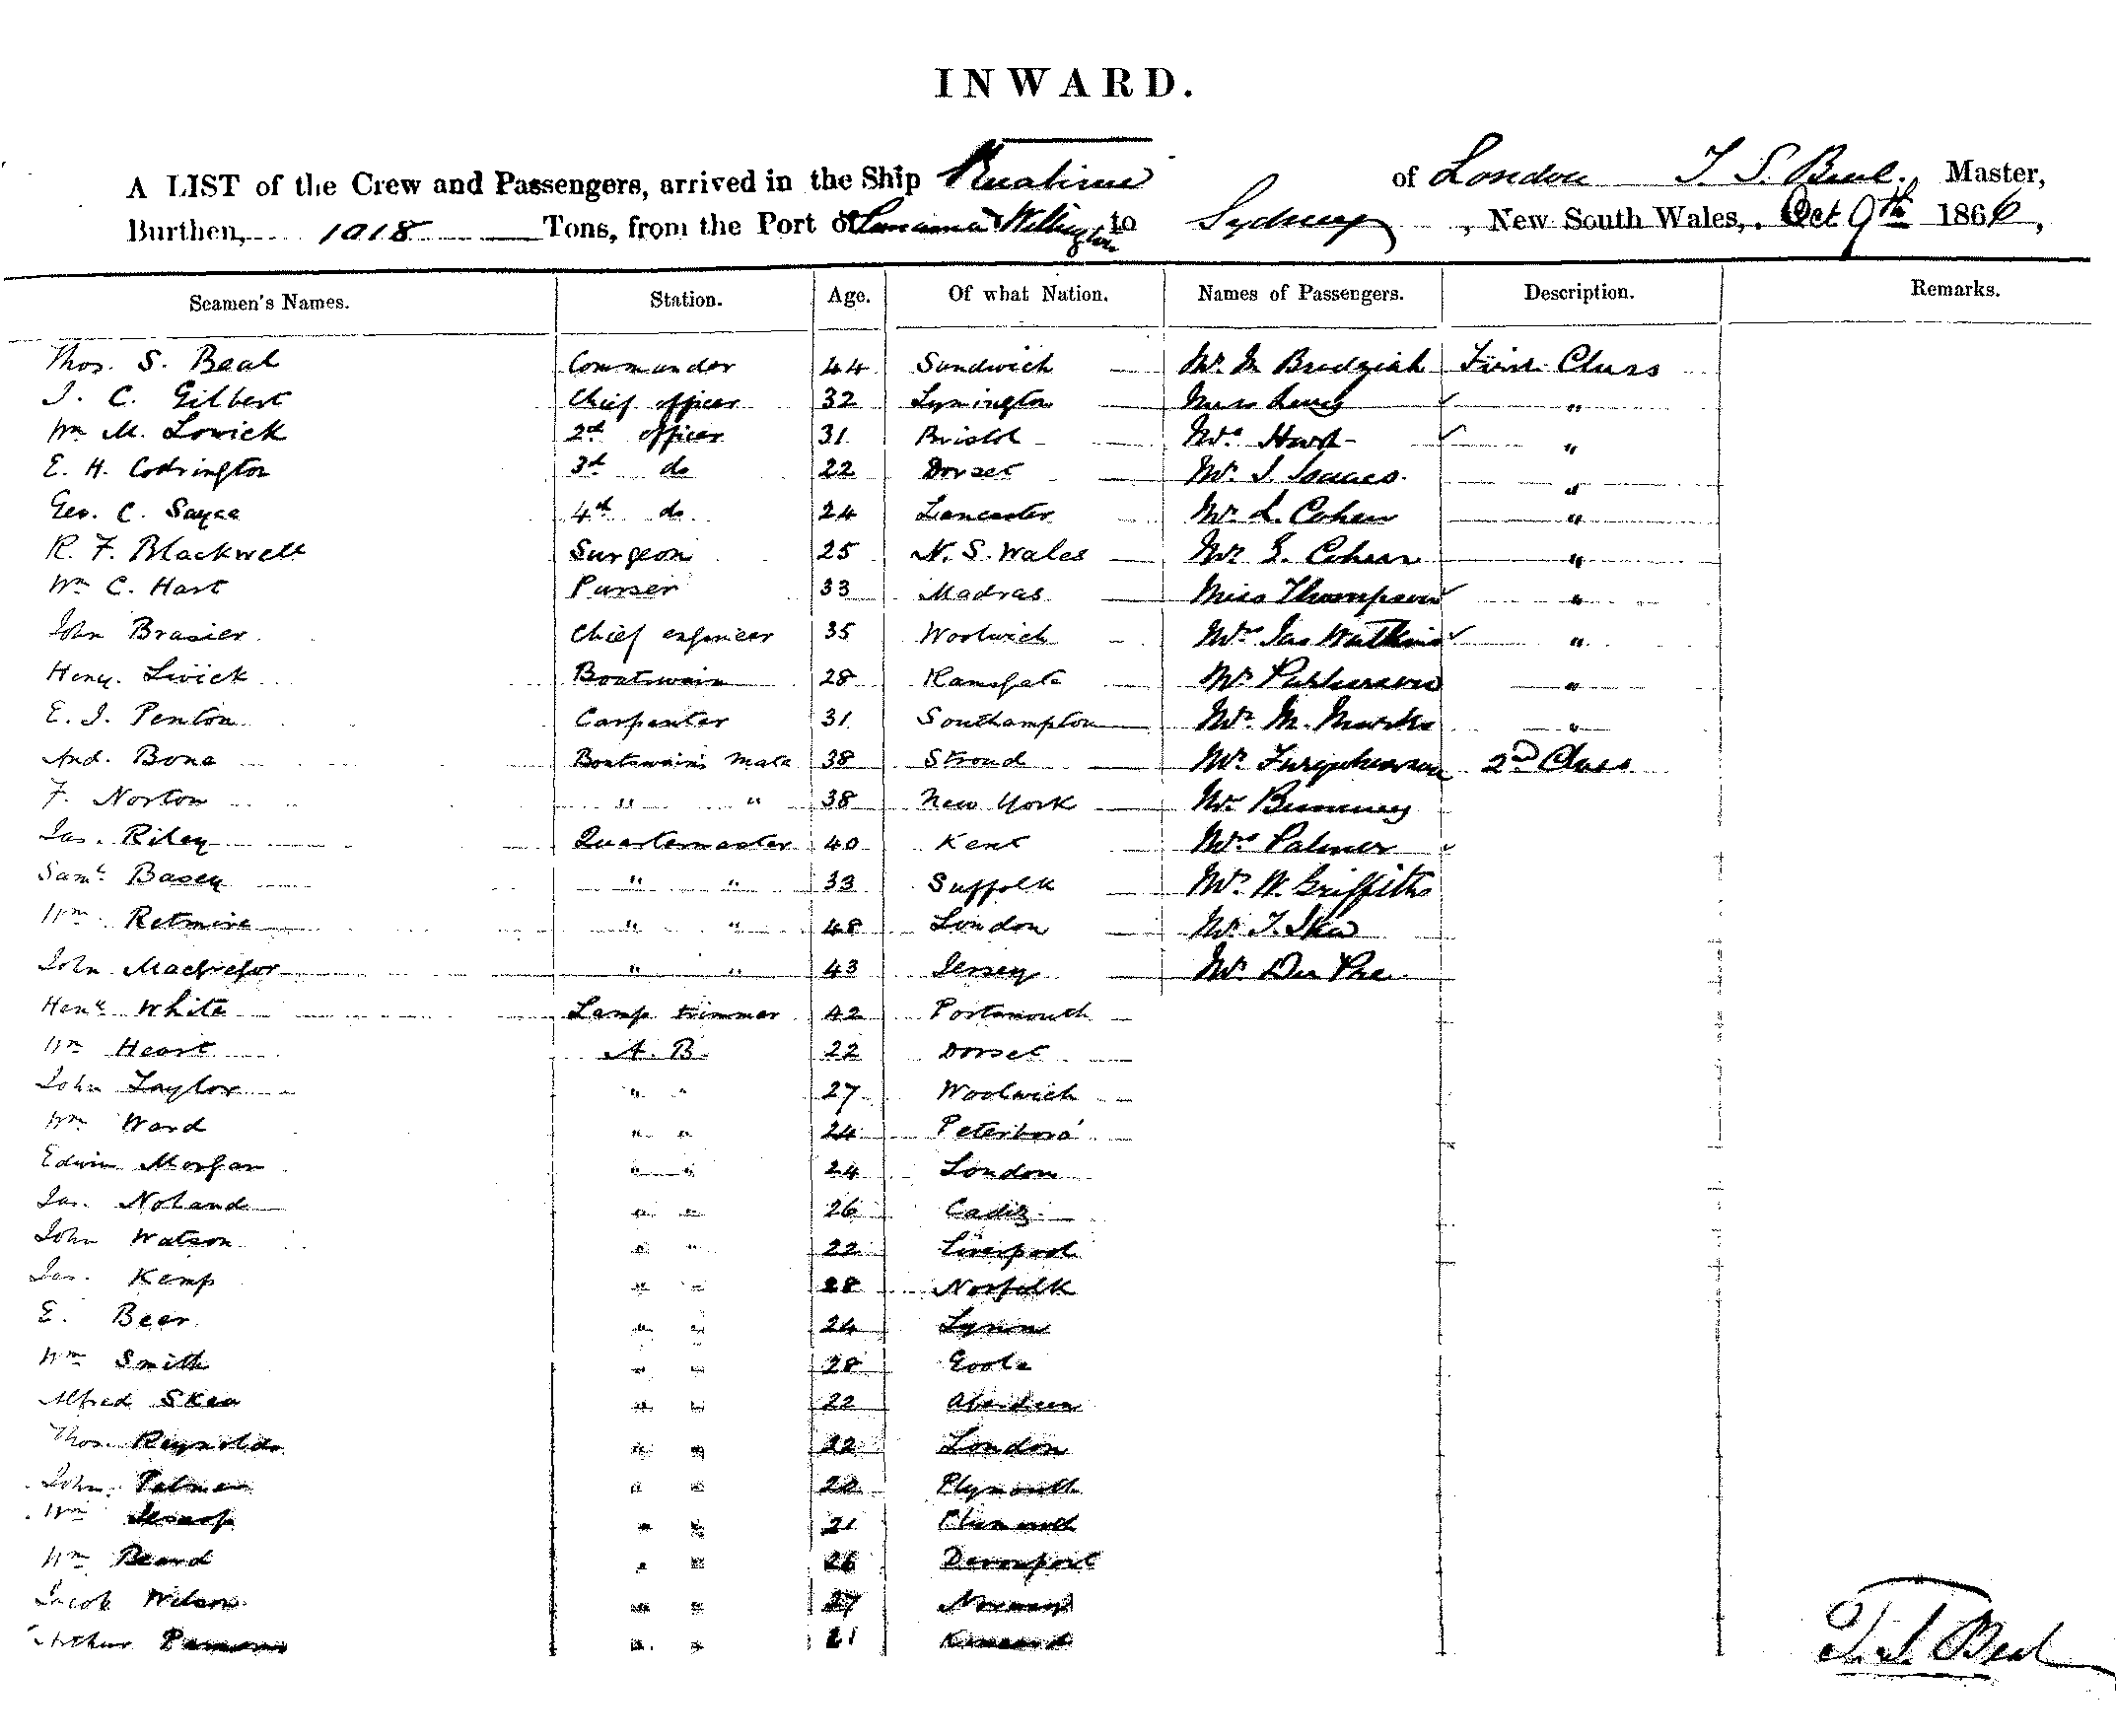 INWARD.
A LIST of the Crew and Passengers, arrived in the Ship Ruahine of London T. S. Beal. Master,
Burthen, 1018 Tons, from the Port of Panama & Wellington to Sydney, New South Wales, Oct 9th 1866,
Seamen's Names. Station. Age. Of what Nation. Names of Passengers. Description. Remarks.
Thos. S. Beal Commander 44 Sandwich Mr. M Brodziak First Class
J. C. Gilbert Chief officer 32 Lymington Levy "
Wm M. Lowick 2d officer 31 Bristol Mrs Hart "
E. H. Codrington 3d do 22 Dorset Mr. J. Isaacs. "
Geo. C. Sayce 4th do 24 Lancaster Mr. L. Cohen "
R. F. Blackwell Surgeon 25 N. S. Wales Mr. E. Cohen "
Wm C. Hart Purser 33 Madras Miss Thompson "
John Brasier Chief engineer 35 Woolwich Jas Watkins "
Heny. Boatswain 28 Ramsgate Mr. "
E. J. Penton Carpenter 31 Southampton Mr. M. Marks "
And. Bone Boatswain's Mate 38 Stroud Mr. Farquharson 2nd Class
F. Norton " " 38 New York Mr.
Jas. Riley Quartermaster 40 Kent Mrs Palmer
Saml. Basey " " 33 Suffolk Mr. W. Griffiths
Wm. Retmire " " 48 London Mr. J.
John Macgregor " " 43 Jersey Mr. Du Pre
Heny White Lamp trimmer 42 Portsmouth
Wm Heart A. B. 22 Dorset
John Taylor " " 27 Woolwich
Wm Ward " " 24 Peterboro'
Edwin Morgan " " 24 London
Jas. Noland " " 26 Cadiz
John Watson " " 22 Liverpool
Jas. Kemp " " 28 Norfolk
E. Beer " " 24 Lynn
Wm Smith " " 28 Goole
Alfred Skea " " 22 Aberdeen
Thos. Reynolds " " 22 London
John Palmer " " 22 Plymouth
Wm Jessop " " 21 Plymouth
Wm Beard " " 26 Devonport
Jacob Wilson " " 27
Arthur Parsons " " 21
T. S. Beal